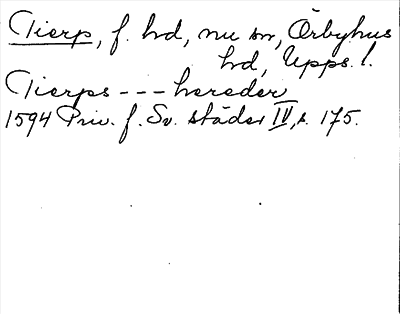 Tierp, f. hd, nu sn, Örbyhus
hd, Upps. l.
Tierps --- hereder
1594 Priv. f. Sv. städer IV, s. 175.